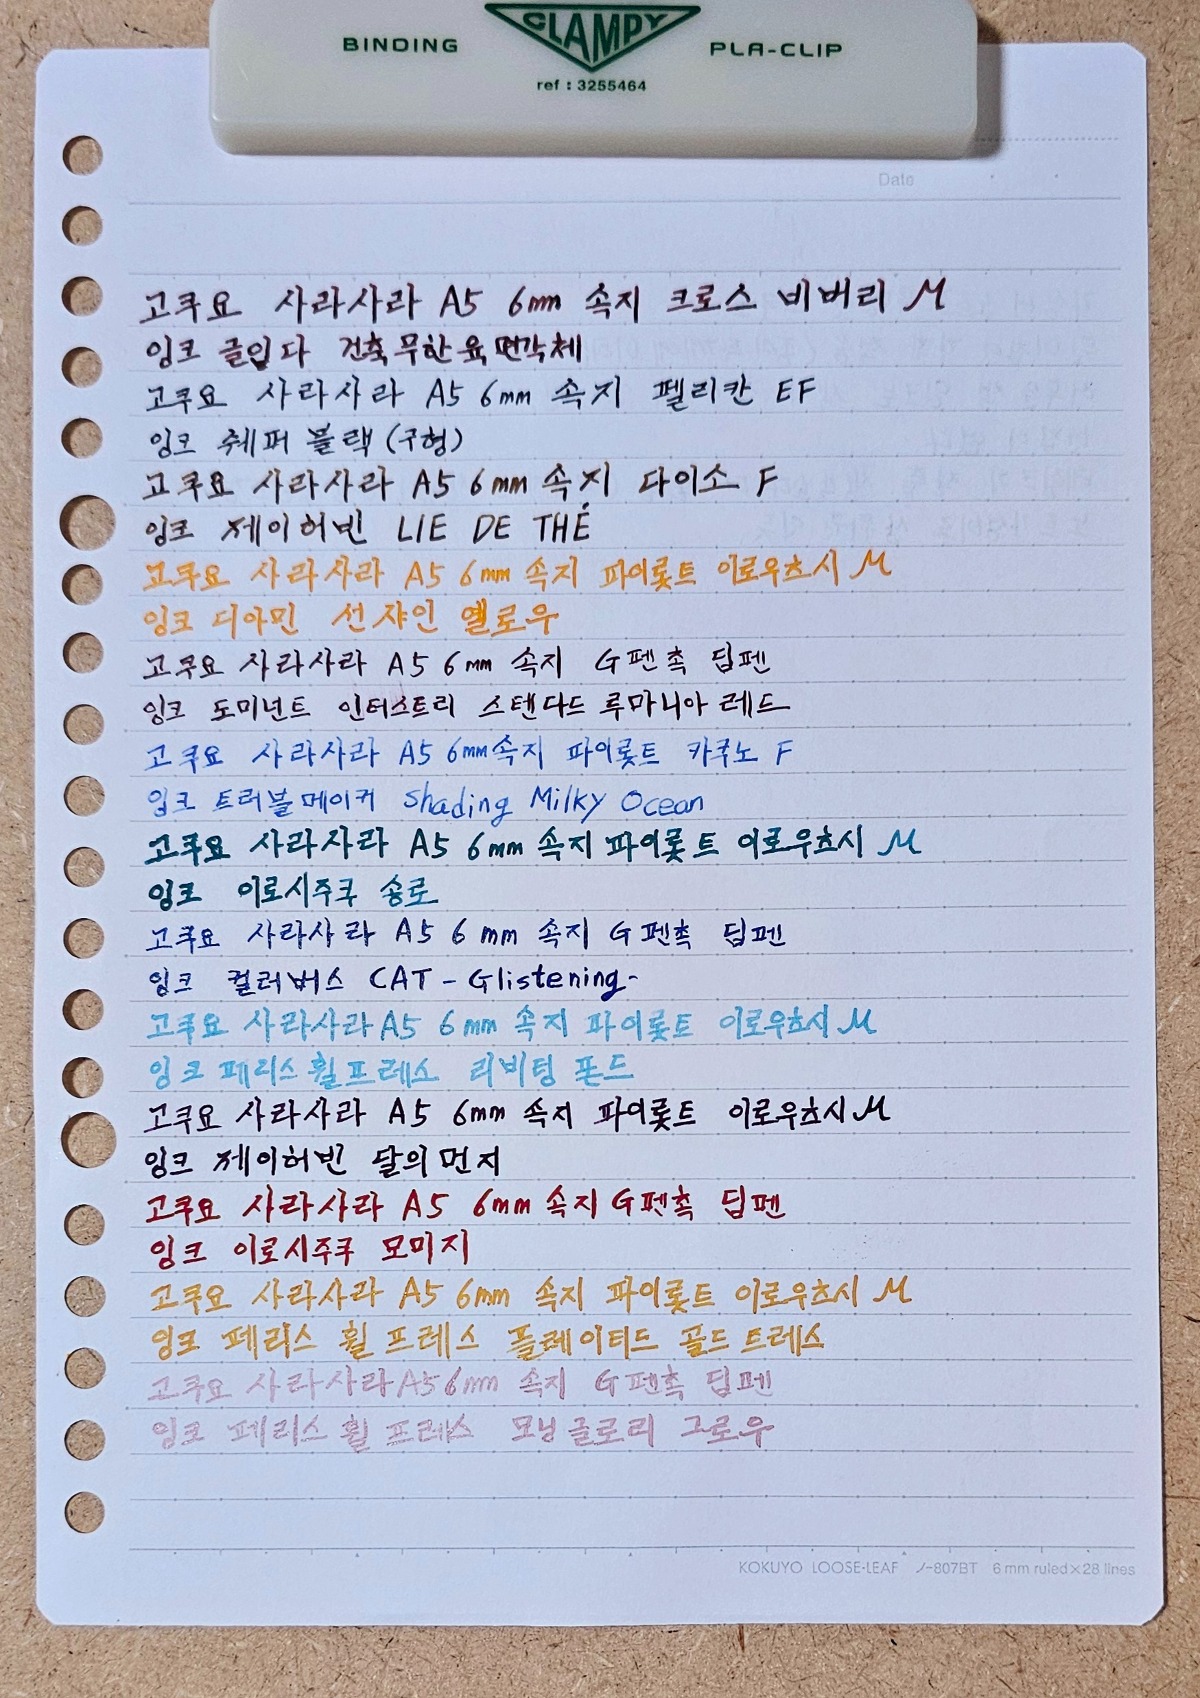 BINDING CLAMPY PLA-CLIP
ref : 3255464
Date
고쿠요 사라사라 A5 6mm 속지 크로스 비버리 M
잉크 글입다 건축무한육면각체
고쿠요 사라사라 A5 6mm 속지 펠리칸 EF
잉크 쉐퍼 블랙 (구형)
고쿠요 사라사라 A5 6mm 속지 다이소 F
잉크 제이허빈 LIE DE THÉ
고쿠요 사라사라 A5 6mm 속지 파이롯트 이로우츠시 M
잉크 디아민 선샤인 옐로우
고쿠요 사라사라 A5 6mm 속지 G펜촉 딥펜
잉크 도미넌트 인더스트리 스탠다드 루마니아 레드
고쿠요 사라사라 A5 6mm 속지 파이롯트 카쿠노 F
잉크 트러블메이커 Shading Milky Ocean
고쿠요 사라사라 A5 6mm 속지 파이롯트 이로우츠시 M
잉크 이로시주쿠 송로
고쿠요 사라사라 A5 6mm 속지 G펜촉 딥펜
잉크 컬러버스 CAT - Glistening-
고쿠요 사라사라 A5 6mm 속지 파이롯트 이로우츠시 M
잉크 페리스휠프레스 리비팅 폰드
고쿠요 사라사라 A5 6mm 속지 파이롯트 이로우츠시 M
잉크 제이허빈 달의먼지
고쿠요 사라사라 A5 6mm 속지 G펜촉 딥펜
잉크 이로시주쿠 모미지
고쿠요 사라사라 A5 6mm 속지 파이롯트 이로우츠시 M
잉크 페리스 휠 프레스 플레이티드 골드 트레스
고쿠요 사라사라 A5 6mm 속지 G펜촉 딥펜
잉크 페리스 휠 프레스 모닝글로리 그로우
KOKUYO LOOSE-LEAF ノ-807BT 6mm ruled×28 lines